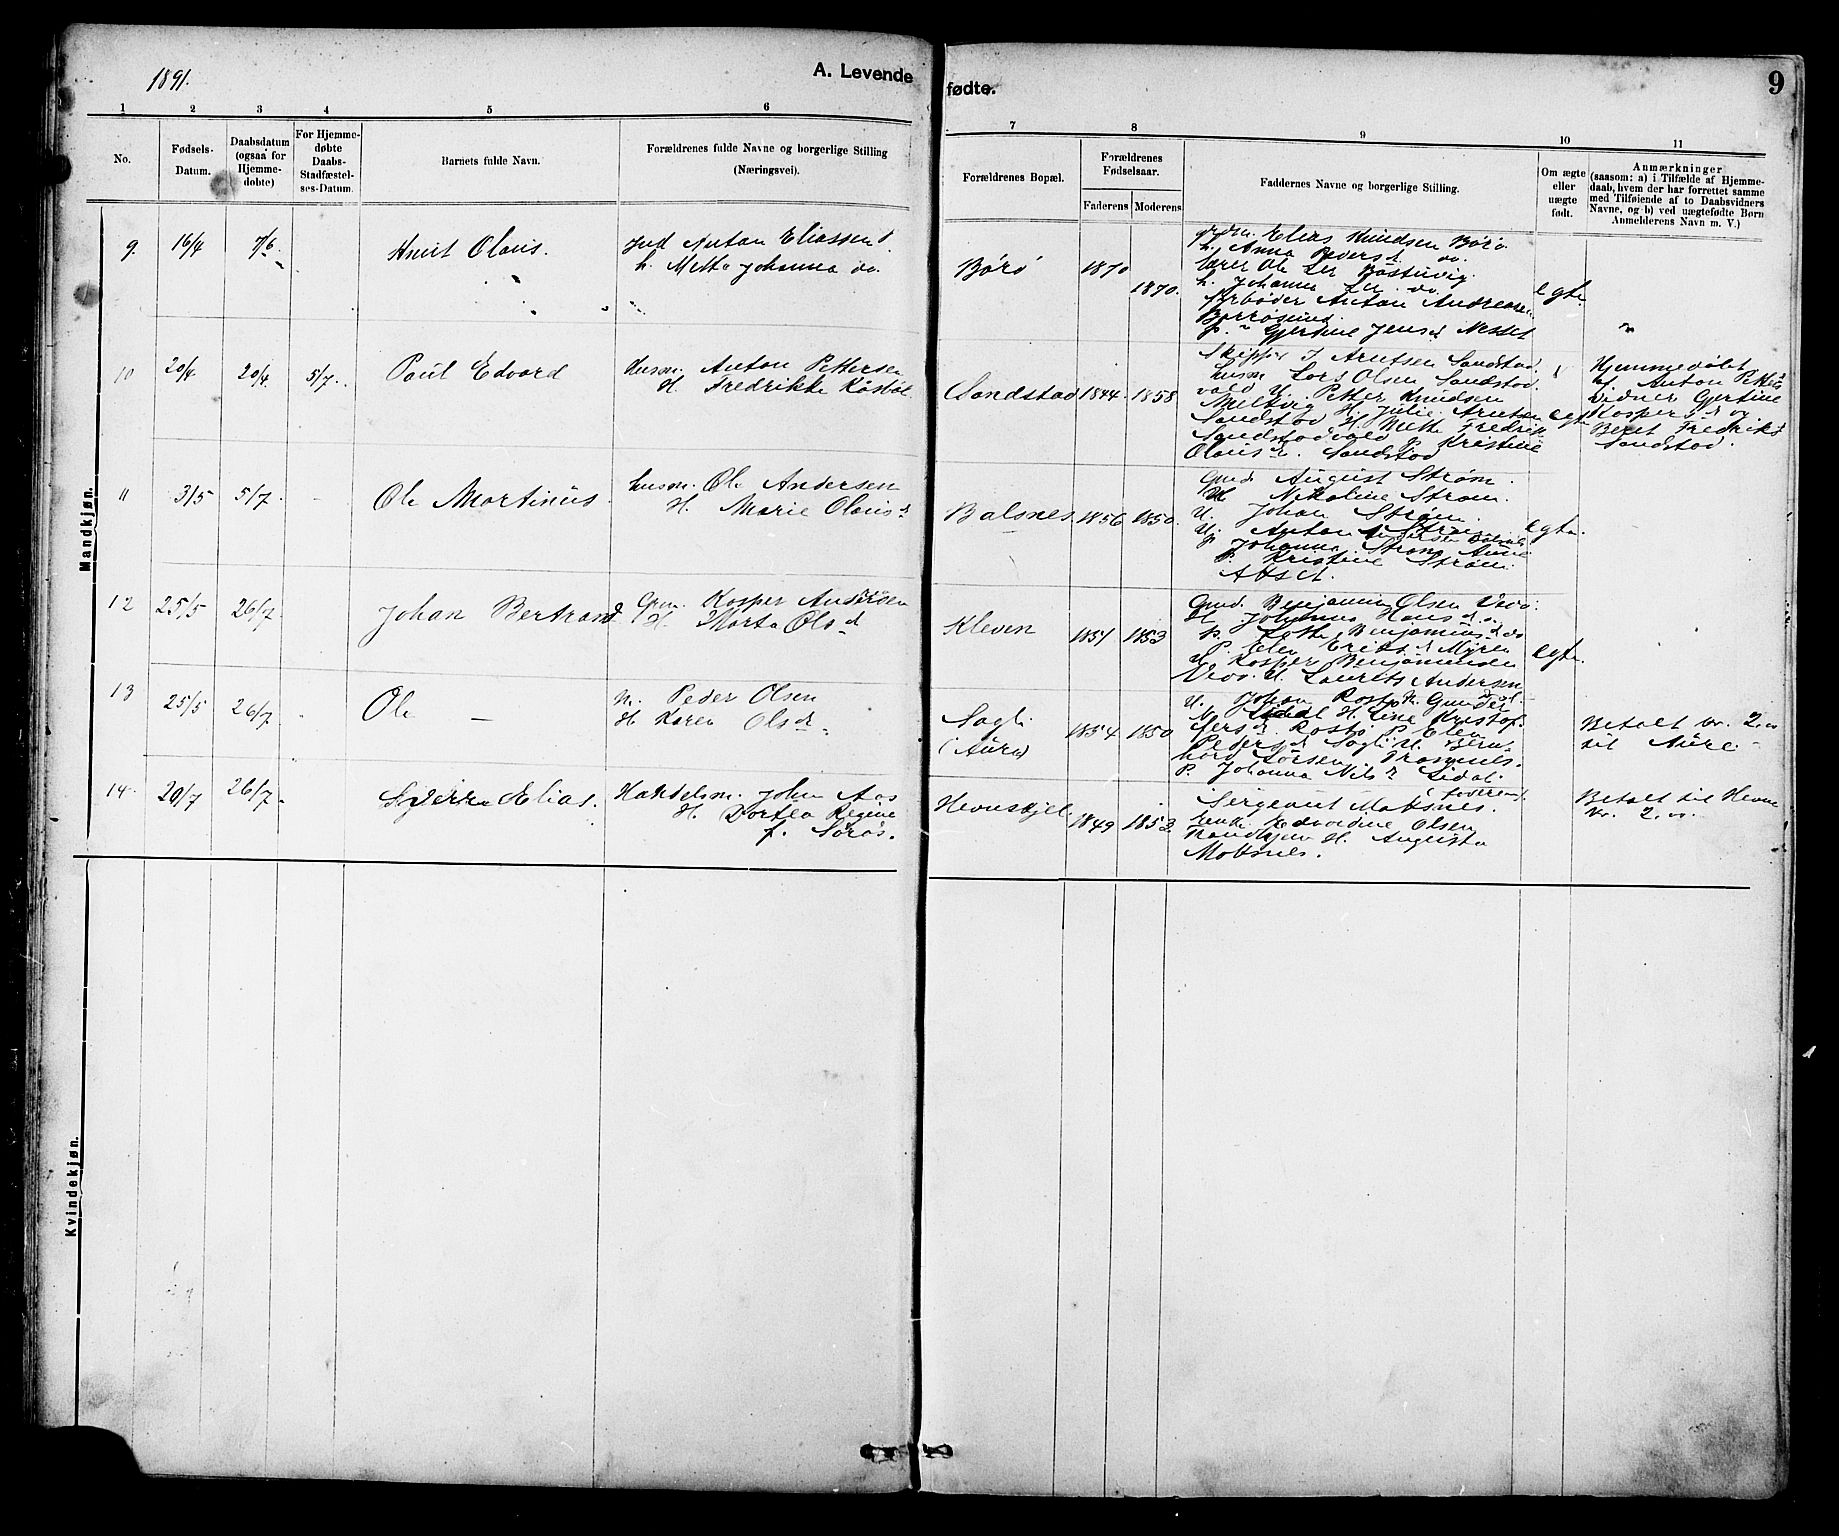 1891.
A. Levende fødte.
9
1 2 3 4 5 6 7 8 9 10 11
No.
Fødsels-Datum.
Daabsdatum (ogsaa for Hjemme-døbte)
For Hjemme-døbte Daabs-Stadfæstel-ses-Datum.
Barnets fulde Navn.
Forældrenes fulde Navne og borgerlige Stilling (Næringsvei).
Forældrenes Bopæl.
Forældrenes Fødselsaar.
Faderens Moderens
Faddernes Navne og borgerlige Stilling.
Om ægte eller uægte født.
Anmærkninger (saasom: a) i Tilfælde af Hjemme-daab, hvem der har forrettet samme med Tilføiende af to Daabsvidners Navne, og b) ved uægtefødte Børn Anmelderens Navn m. V.)
Mandkjøn.
9. 16/4 7/6 Knut Olaus.
Anton Eliassen
h. Mette Johanna do.
Børø 1870 1870.
Elias Knudsen Børø
h. Anna Peders d. do.
Lærer Ole Ler Båstuvig
h. Johanna Ler do.
Anton Andreasen
Børrøsund.
p. Gjertine Jens d Nesset
egte.
10 20/4 20/4 5/7. Paul Edvard
Husm. Anton Pettersen
H. Fredrikke
Sandstad 1844. 1858.
Skipper J Arntsen Sandstad.
husm Lars Olsen Sandstad
vald U. Petter Knudsen
Meltvig H. Julie Arntsen
Sandstad H. Mette Fredrik
Sandstadvald P. Kristine
Olaus d. Sandstad
egte
Hjemmedøbt
af Anton Petters
vidner Gjertine
Kaspers d og
Beret Fredriks
Sandstad.
11 3/5 5/7. - Ole Martinus.
husm. Ole Andersen
H. Marie Olaus d
Balsnes. 1856 1850.
Gmd. August Strøm.
H Nikoline Strøm.
U. Johan Strøm.
U. Anton Strøm
P. Johanna Strøm
P. Kristine Strøm.
egte.
12 25/5 26/7 Johan Bertrand
Gm. Kasper Andersen
H. Marta Ols d
Kleven 1851 1853
Gmd. Benjamin Olsen
H Johanna Hans d
P. Benjamins d do
P. Elen Eriks d Myren
U Kasper Benjaminsen
U. Laurits Andersen
egte.
13 25/5 26/7 Ole -
Peder Olsen
H. Karen Ols d
Sagli (Aure) 1854 1850
U. Johan
H. Line Kristof
fers d. P. Elen
Peders d Sagli U. Bern
hard Sørsen
P. Johanna Nils d Lidal.
Betalt kr. 2.00
til Aure -
14. 20/7 26/7 Sverre Elias.
Handelsm. John Aas
H. Dortea Regine
f. Sørøs.
Hevnskjel. 1849 1853
Sergeant Moksnes.
Enke Edvardine Olsen
Trondhjem H. Augusta
Moksnes.
Betalt til Hevne
kr. 2.00.
Kvindekjøn.